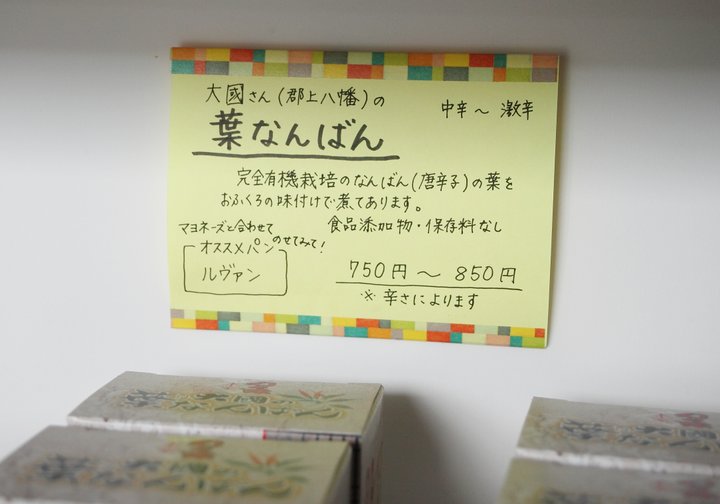 大國さん(郡上八幡)の
中辛～激辛
葉なんばん
完全有機栽培のなんばん(唐辛子)の葉を
おふくろの味付けで煮てあります。
食品添加物・保存料なし
マヨネーズと合わせて
のせてみて!
オススメパン
ルヴァン
750円～850円
※辛さによります